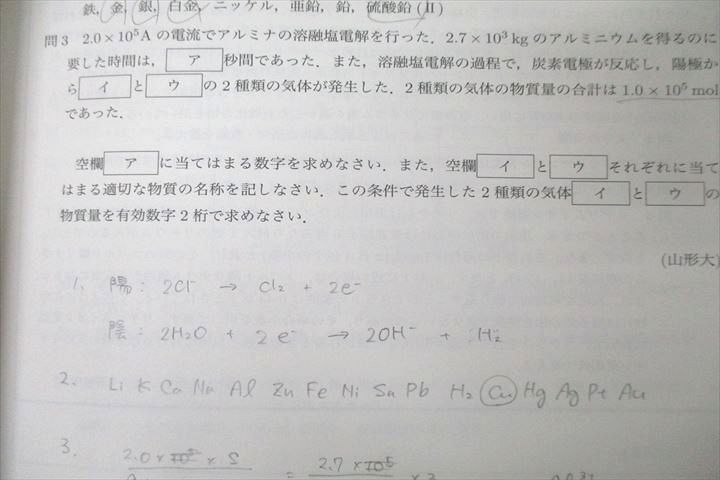 鉄, 金, 銀, 白金, ニッケル, 亜鉛, 鉛, 硫酸鉛(II)
問3 2.0 × 10⁵A の電流でアルミナの溶融塩電解を行った. 2.7 × 10³ kg のアルミニウムを得るのに
要した時間は, ア 秒間であった. また, 溶融塩電解の過程で, 炭素電極が反応し, 陽極か
ら イ と ウ の2種類の気体が発生した. 2種類の気体の物質量の合計は 1.0 × 10⁵ mol
であった.
空欄 ア に当てはまる数字を求めなさい. また, 空欄 イ と ウ それぞれに当て
はまる適切な物質の名称を記しなさい. この条件で発生した2種類の気体 イ と ウ の
物質量を有効数字2桁で求めなさい.
(山形大)
1. 陽: 2Cl⁻ → Cl₂ + 2e⁻
陰: 2H₂O + 2e⁻ → 2OH⁻ + H₂
2. Li K Ca Na Al Zn Fe Ni Sn Pb H₂ Cu Hg Ag Pt Au
3. 2.0 × 10⁵ × S = 2.7 × 10⁵ × 3